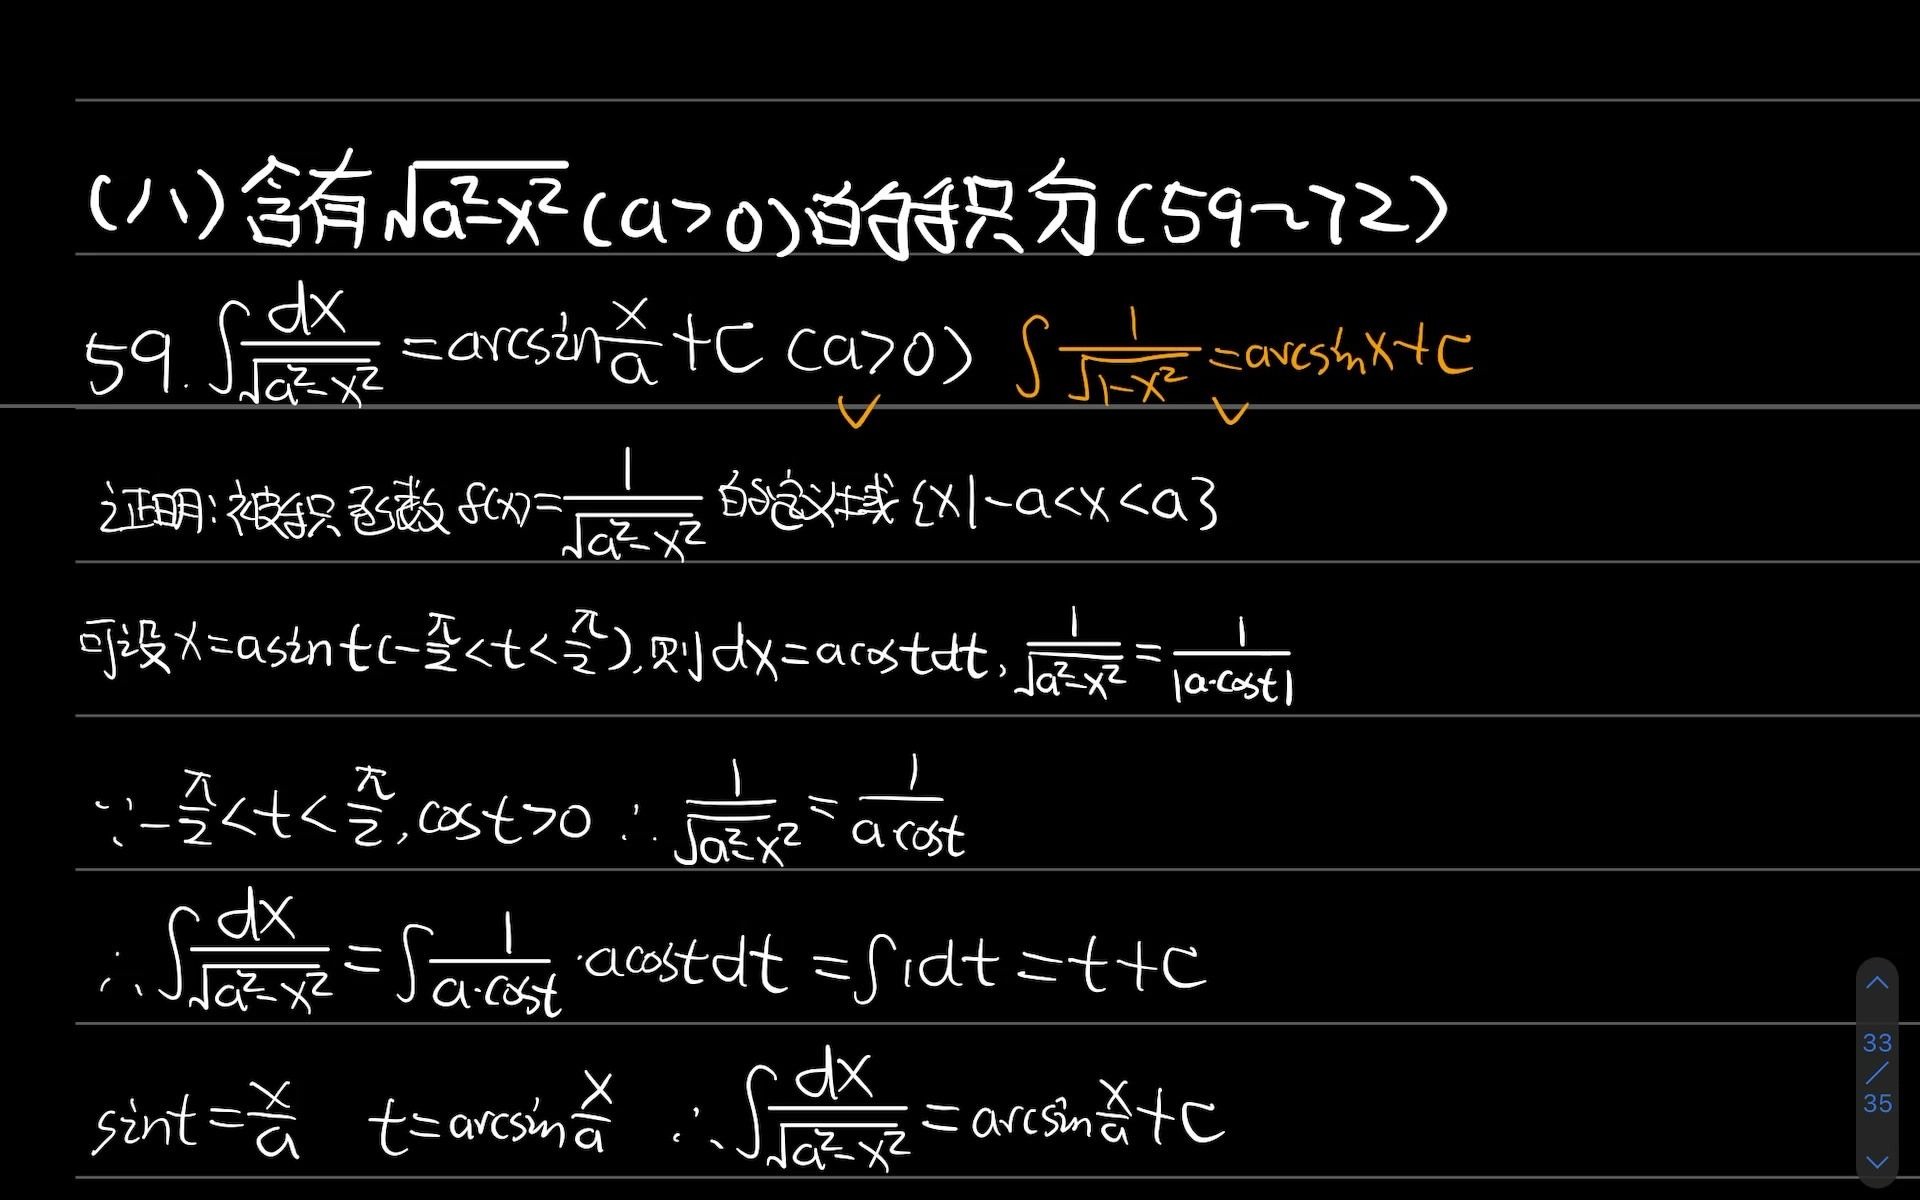 (八)含有√(a²-x²)(a>0)的积分(59~72)
59. ∫dx/√(a²-x²) = arcsin x/a + C (a>0) ∫1/√(1-x²) = arcsinx+C
证明:被积函数f(x)=1/√(a²-x²) 的定义域{x|-a<x<a}
可设x=asint(-π/2<t<π/2),则dx=acostdt, 1/√(a²-x²) = 1/|a·cost|
∵-π/2<t<π/2, cost>0 ∴ 1/√(a²-x²) = 1/(a·cost)
∴ ∫dx/√(a²-x²) = ∫1/(a·cost) ·acostdt = ∫1dt = t+C
sint = x/a t=arcsin x/a ∴ ∫dx/√(a²-x²) = arcsin x/a + C
33
/
35